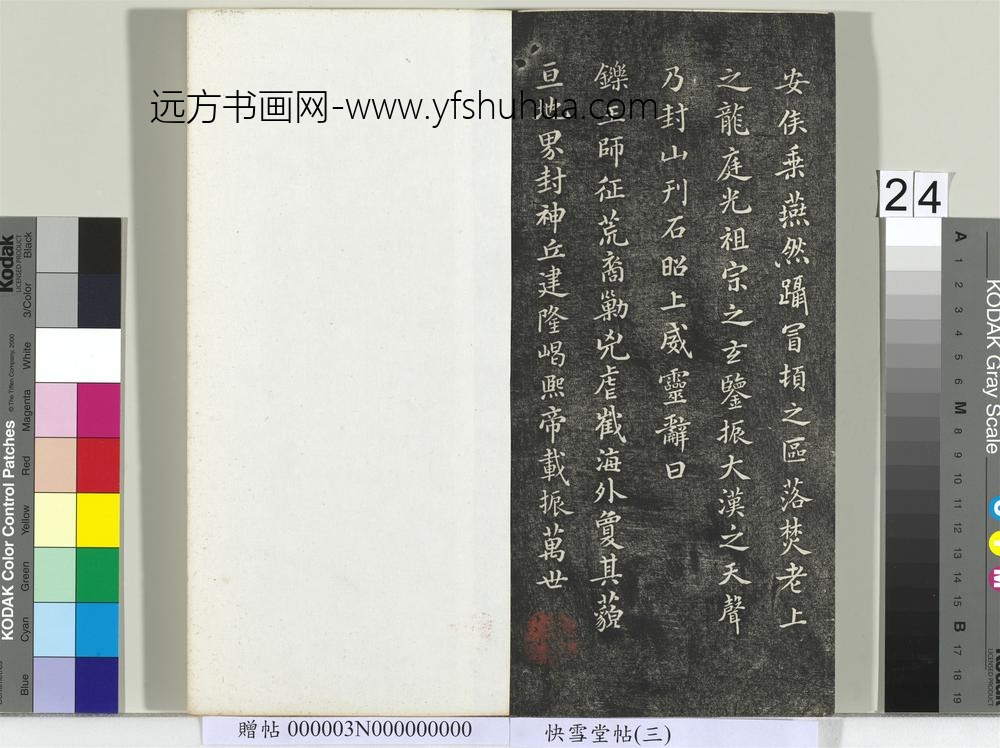 安侯乗燕然躡冐頓之區落焚老上
之龍庭光祖宗之玄鑒振大漢之天聲
乃封山刊石昭上威靈辭曰
鑠王師征荒裔勦兇虐截海外夐其藐
亘地界封神丘建隆嵑熙帝載振萬世
远方书画网-www.yfshuhua.com
24
贈帖 000003N000000000
快雪堂帖(三)
Kodak
LICENSED PRODUCT
KODAK Color Control Patches
© The Tiffen Company, 2000
Black
3/Color
White
Magenta
Red
Yellow
Green
Cyan
Blue
KODAK Gray Scale
A 1 2 3 4 5 6 M 8 9 10 11 12 13 14 15 B 17 18 19
C
Y
M